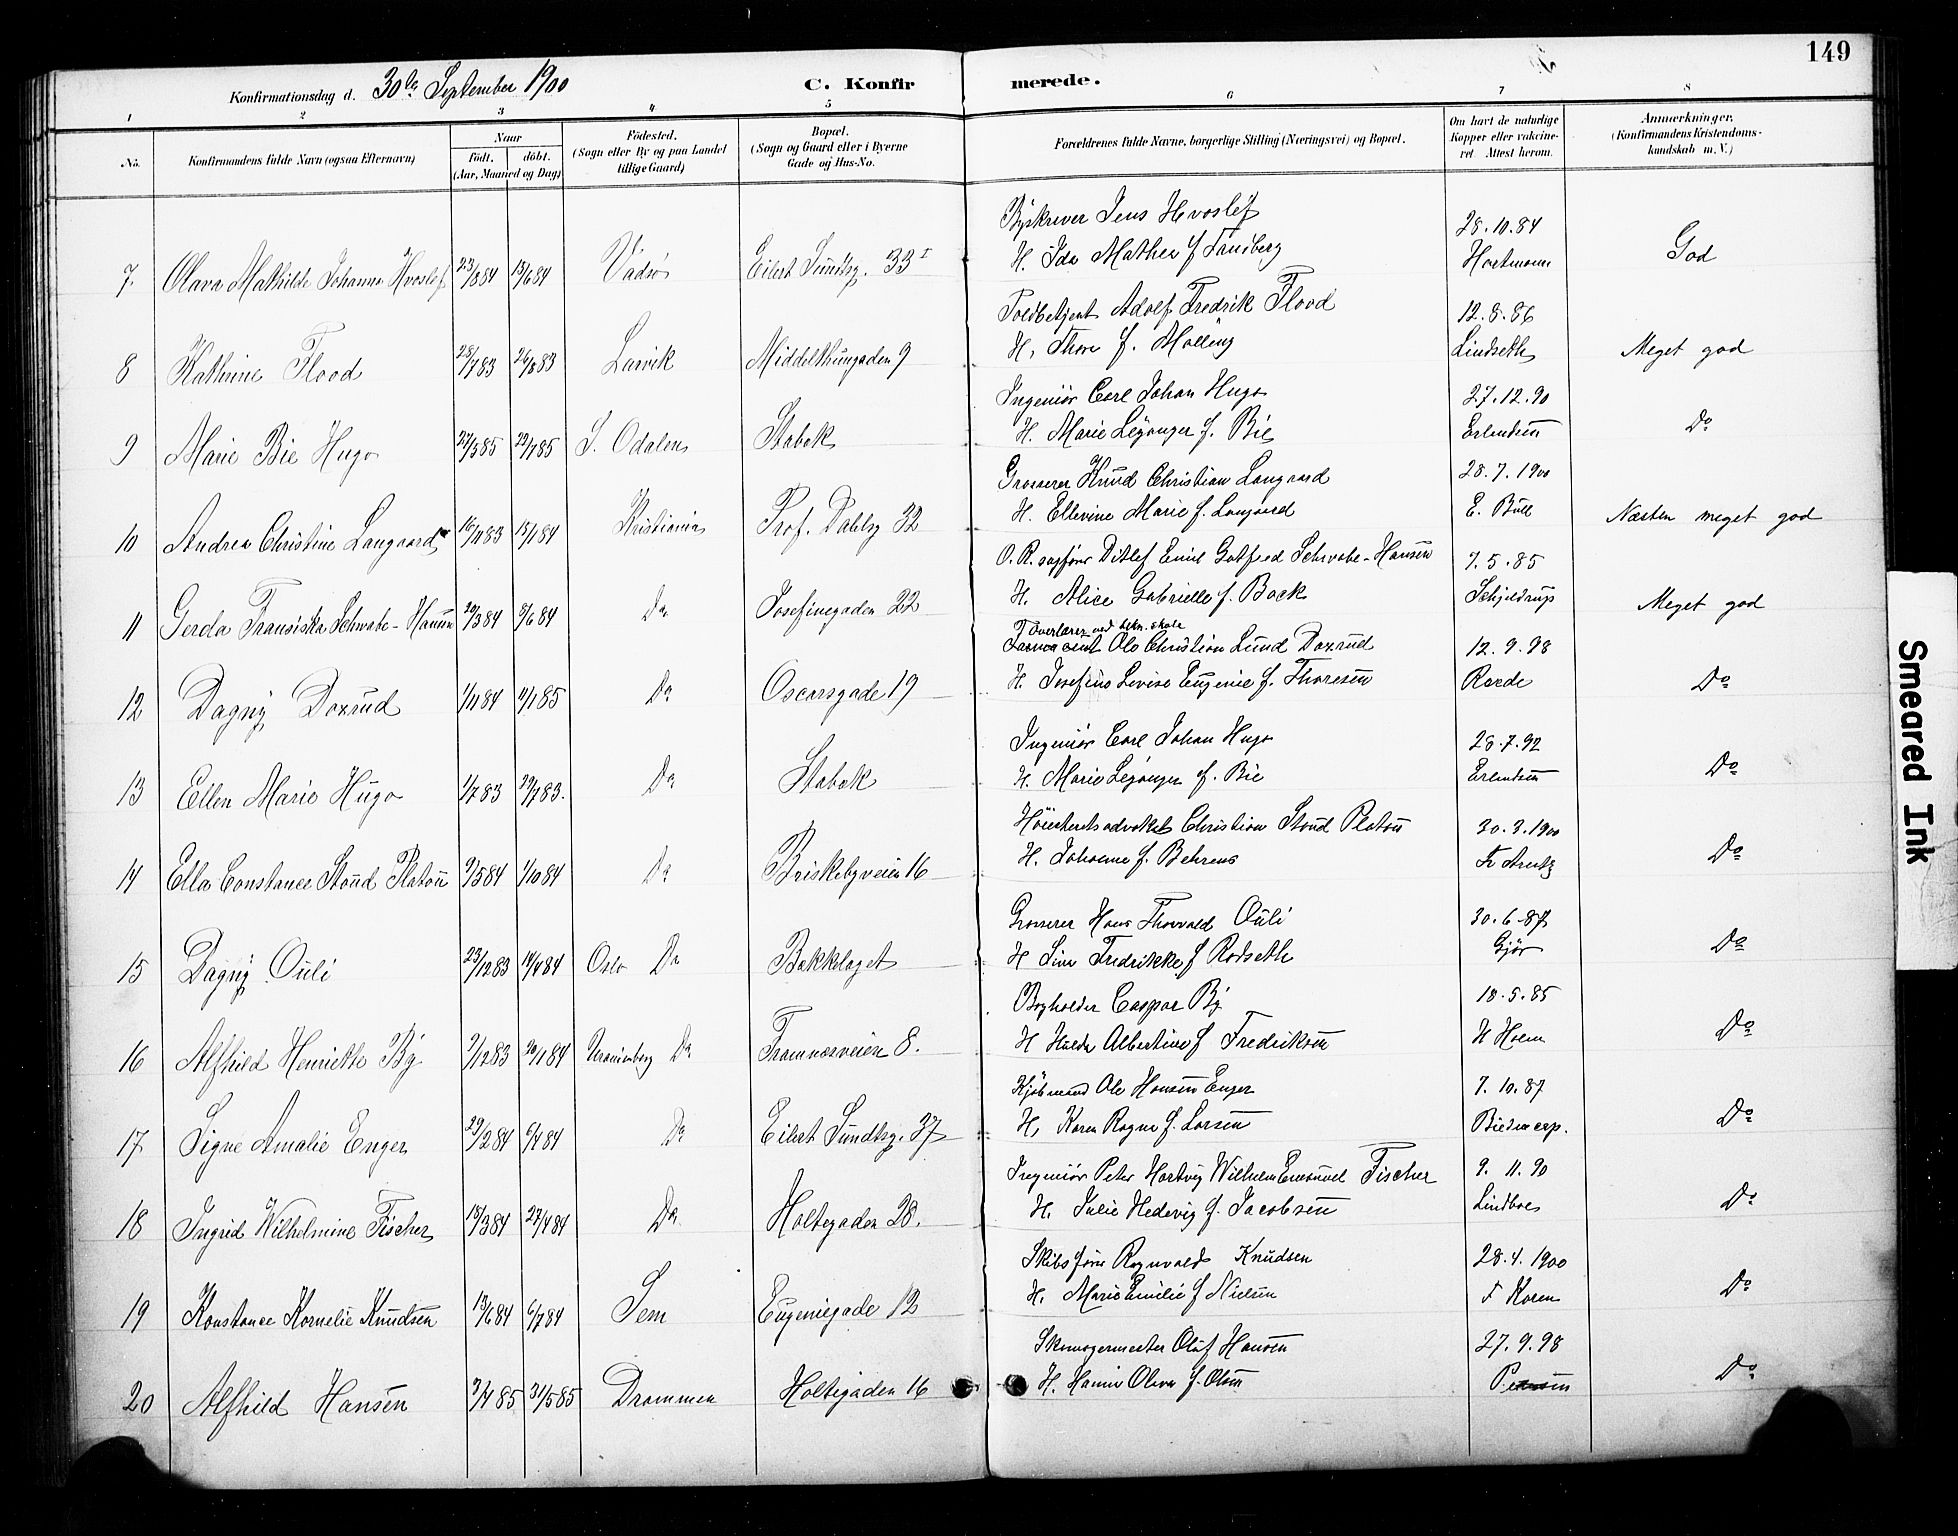 149
Konfirmationsdag d. 30te September 1900 C. Konfirmerede.
1 2 3 4 5 6 7 8
No. Konfirmandens fulde Navn (ogsaa Efternavn) Naar født. døbt. (Aar, Maaned og Dag) Fødested. (Sogn eller By og paa Landet tillige Gaard) Bopæl. (Sogn og Gaard eller i Byerne Gade og Hus-No. Forældrenes fulde Navne, borgerlige Stilling (Næringsvei) og Bopæl. Om havt de naturlige Kopper eller vakcineret. Attest herom. Anmærkninger. (Konfirmandens Kristendomskundskab m. V.)
Byskriver Jens Hvoslef 28.10.84
7. Olava Mathilde Johanna Hvoslef 23/1 84 13/6 84 Vadsø Eilert Sundtsg. 33 I H. Ida Mathea f. Hartmann God
Toldbetjent Adolf Fredrik Flood 12.8.86
8 Kathrine Flood 28/7 83 26/8 83 Larvik Middelthunsgaden 9 H. Thora f. Mølling Lindseth Meget god
Ingeniør Carl Johan Hugo 27.12.90
9 Marie Bie Hugo 27/5 85 22/7 85 S. Odalen Stabek H. Marie Leganger f. Bie Erlendsen Do
Grosserer Knud Christian Langaard 28.7.1900
10 Andrea Christine Langaard 16/11 83 15/1 84 Kristiania Prof. Dahlsg 32 H. Ellevine Marie f. Langaard E. Bull Næsten meget god
O.R. sagfører Ditlef Emil Gotfred Schwabe-Hansen 7.5.85
11 Gerda Fransiska Schwabe-Hansen 20/3 84 8/6 84 Do Josefinegaden 22 H. Alice Gabrielle f. Bock Schjeldrup Meget god
Overlærer ved tekn. skole
Ole Christian Lund Doxrud 12.9.98
12 Dagny Doxrud 1/11 84 11/1 85 Do Oscarsgade 19 H. Josefine Lovise Eugenie f. Thoresen Roede Do
Ingeniør Carl Johan Hugo 28.7.92
13 Ellen Marie Hugo 1/7 83 29/7 83. Do Stabek H. Marie Leganger f. Bie Erlendsen Do
Høiesteretsadvokat Christian Stoud Platou 30.3.1900
14 Ella Constance Stoud Platou 9/5 84 1/10 84 Do Briskebyveien 16 H. Johanne f. Behrens Fr Arentz Do
Grosserer Hans Thorvald Ouli 30.6.87
15 Dagny Ouli 23/12 83 14/4 84 Oslo Do Bækkelaget H Sina Fredrikke f Rodseth Gjør Do
Bogholder Caspar By 18.5.85
16 Alfhild Henriette By 9/12 83 20/1 84 Uranienborg Do Framnæsveien 8. H Hulda Albertine f Fredriksen H Holm Do
Kjøbmand Ole Hansen Enger 7.10.87
17 Signe Amalie Enger 29/2 84 6/4 84 Do Eilert Sundtsg. 37 H. Karen Ragna f. Larsen Biedencap. Do
Ingeniør Peter Hartvig Wilhelm Emanuel Fischer 9.11.90
18 Ingrid Wilhelmine Fischer 18/3 84 27/4 84 Do Holtegaden 28. H. Julie Hedevig f. Jacobsen Lindboe Do
Skibsfører Ragnvald Knudsen 28.4.1900
19 Konstance Kornelie Knudsen 13/6 84 6/7 84 Sem Eugeniegade 12 H. Marie Emilie f Nielsen F Koren Do
Skomagermester Oluf Hansen 27.9.98
20 Alfhild Hansen 3/4 85 31/5 85 Drammen Holtegaden 16 H. Olava f. Olsen Do
Smeared Ink